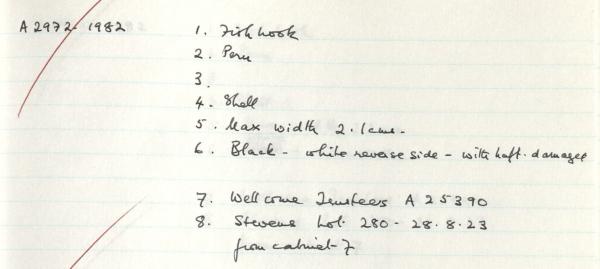 A 2972. 1982
1. Fish hook
2. Peru
3.
4. Shell
5. Max width 2.1cms.
6. Black - white reverse side - with haft. damaged
7. Wellcome Trustees A 25390
8. Stevens Lot. 280 - 28.8.23
from cabinet 7